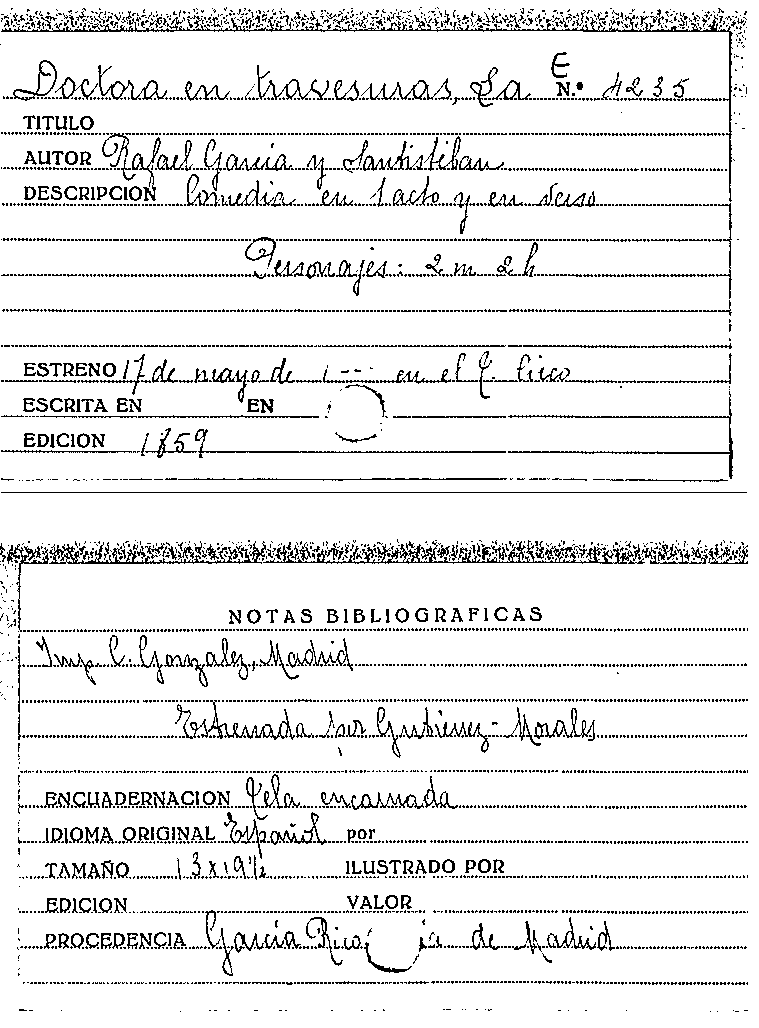 Doctora en travesuras, La E N.º 4235
TITULO
AUTOR Rafael García y Santistéban
DESCRIPCION Comedia en 1 acto y en verso
Personajes: 2 m 2 h
ESTRENO 17 de mayo de 1--- en el T. Circo
ESCRITA EN EN
EDICION 1859
NOTAS BIBLIOGRAFICAS
Imp. C. Gonzalez, Madrid
Estrenada por Gutiérrez-Morales
ENCUADERNACION Tela encarnada
IDIOMA ORIGINAL Español por
TAMAÑO 13x19½ ILUSTRADO POR
EDICION VALOR
PROCEDENCIA García Rico de Madrid